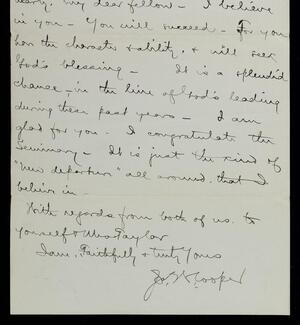 my dear fellow - I believe
in you - You will succeed - For you
have the character & ability, & will seek
God's blessing - It is a splendid
chance - in the line of God's leading
during these past years - I am
glad for you - I congratulate the
Seminary - It is just the kind of
"new departure" all around, that I
believe in -
With regards from both of us, to
yourself & Mrs Taylor
I am, Faithfully & truly Yours
Cooper